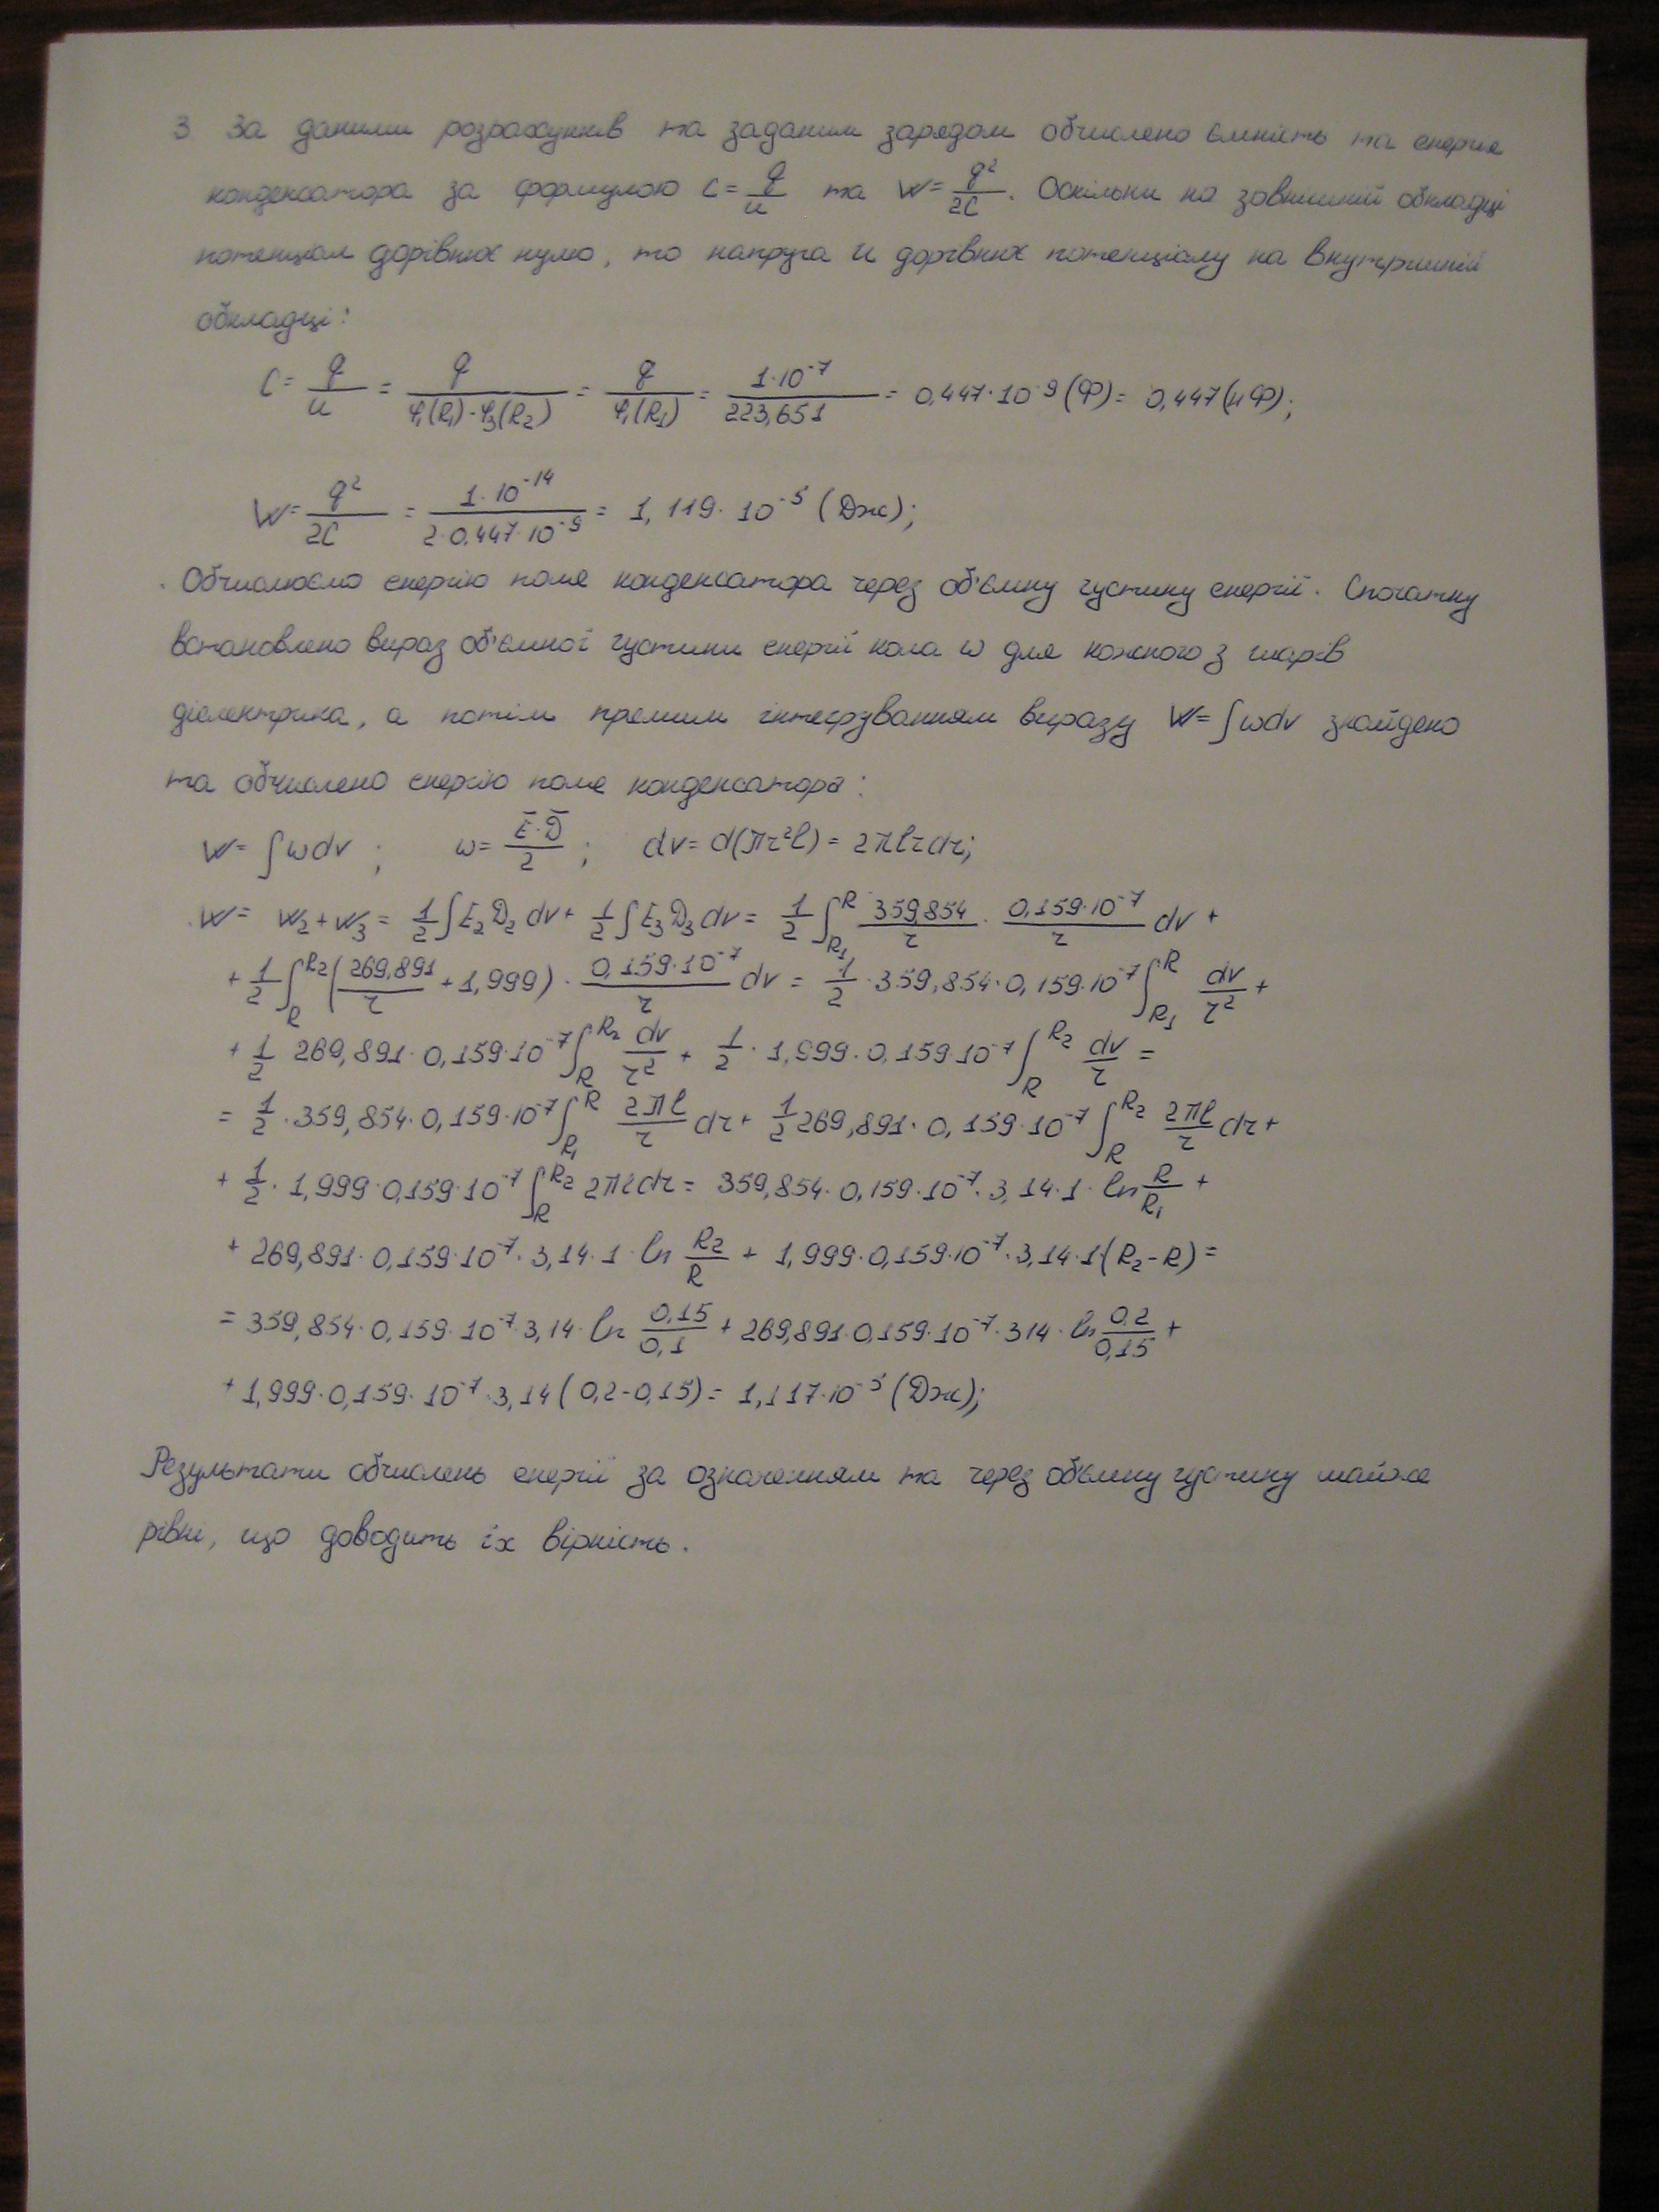 3 За даними розрахунків та заданим зарядом обчислено ємність та енергія
конденсатора за формулою C = q/u та W = q²/2C. Оскільки на зовнішній обкладці
потенціал дорівнює нулю, то напруга u дорівнює потенціалу на внутрішній
обкладці:
C = q/u = q/(φ₁(R₁)-φ₃(R₂)) = q/φ₁(R₁) = 1·10⁻⁷/223,651 = 0,447·10⁻⁹ (Ф) = 0,447 (нФ);
W = q²/2C = 1·10⁻¹⁴/(2·0,447·10⁻⁹) = 1,119·10⁻⁵ (Дж);
Обчислюємо енергію поля конденсатора через об'ємну густину енергії. Спочатку
встановлено вираз об'ємної густини енергії кола ω для кожного з шарів
діелектрика, а потім прямим інтегруванням виразу W = ∫ωdv знайдено
та обчислено енергію поля конденсатора:
W = ∫ωdv ; ω = Ē·D̄/2 ; dv = d(πr²l) = 2πlrdr;
W = W₂ + W₃ = 1/2 ∫E₂D₂dv + 1/2 ∫E₃D₃dv = 1/2 ∫_{R₁}^{R} 359,854/r · 0,159·10⁻⁷/r dv +
+ 1/2 ∫_{R}^{R₂} (269,891/r + 1,999) · 0,159·10⁻⁷/r dv = 1/2 · 359,854·0,159·10⁻⁷ ∫_{R₁}^{R} dv/r² +
+ 1/2 269,891·0,159·10⁻⁷ ∫_{R}^{R₂} dv/r² + 1/2 · 1,999·0,159·10⁻⁷ ∫_{R}^{R₂} dv/r =
= 1/2 · 359,854·0,159·10⁻⁷ ∫_{R₁}^{R} 2πl/r dr + 1/2 269,891·0,159·10⁻⁷ ∫_{R}^{R₂} 2πl/r dr +
+ 1/2 · 1,999·0,159·10⁻⁷ ∫_{R}^{R₂} 2πldr = 359,854·0,159·10⁻⁷·3,14·1·ln R/R₁ +
+ 269,891·0,159·10⁻⁷·3,14·1·ln R₂/R + 1,999·0,159·10⁻⁷·3,14·1(R₂-R) =
= 359,854·0,159·10⁻⁷·3,14·ln 0,15/0,1 + 269,891·0,159·10⁻⁷·3,14·ln 0,2/0,15 +
+ 1,999·0,159·10⁻⁷·3,14(0,2-0,15) = 1,117·10⁻⁵ (Дж);
Результати обчислень енергії за означенням та через об'ємну густину майже
рівні, що доводить їх вірність.